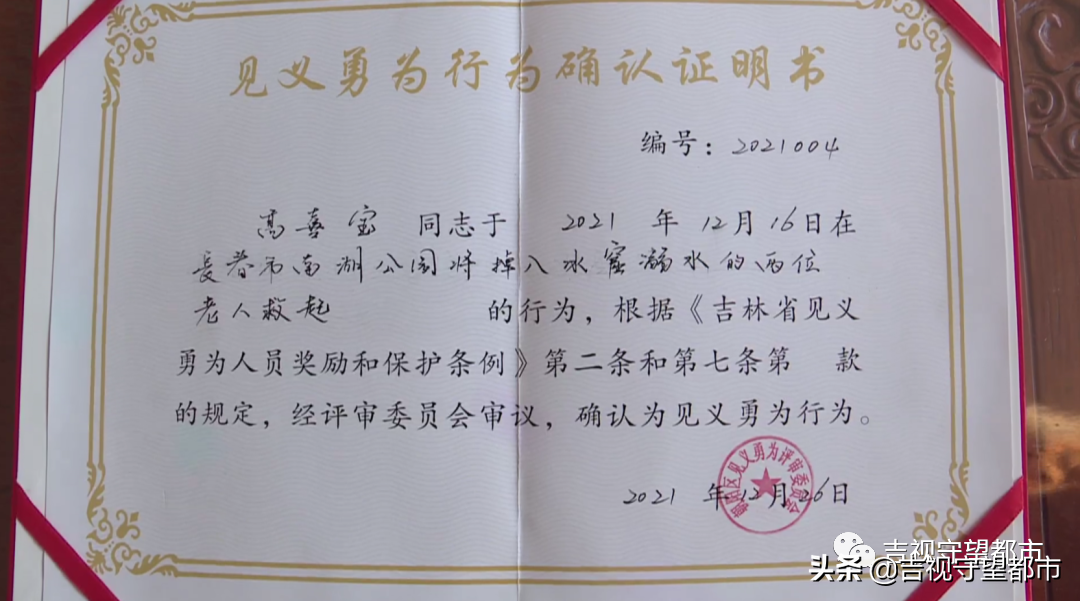 见义勇为行为确认证明书
编号：2021004
高喜宝 同志于 2021 年 12月 16日在
长春市南湖公园将掉入冰窟溺水的两位
老人救起 的行为，根据《吉林省见义
勇为人员奖励和保护条例》第二条和第七条第 款
的规定，经评审委员会审议，确认为见义勇为行为。
朝阳区见义勇为评审委员会
2021 年12月26日
吉视守望都市
头条 @吉视守望都市